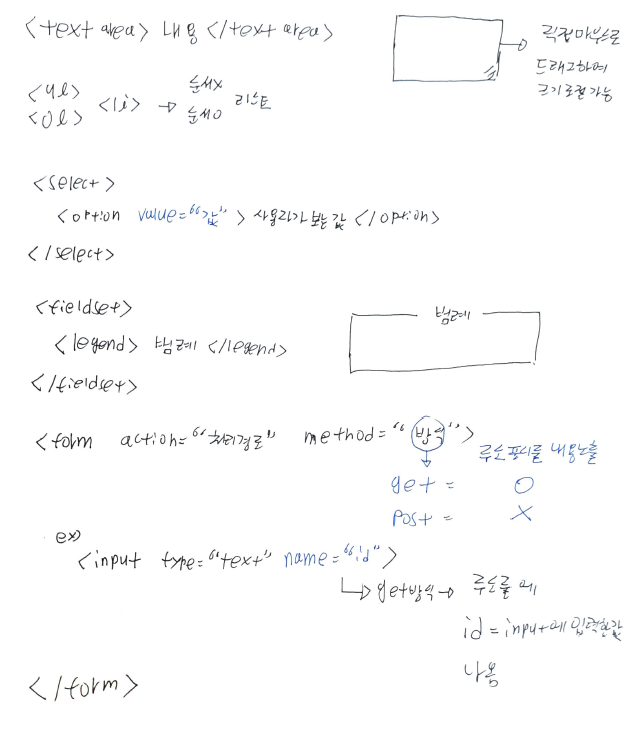 <text area> 내용 </text area>
직접마우스로
드래그하여
크기조절가능
<ul>
<ol>
<li> → 순서X
순서O
리스트
<select>
<option value="값"> 사용자가 보는 값 </option>
</select>
<fieldset>
<legend> 범례 </legend>
</fieldset>
범례
<form action="처리경로" method="방식">
주소표시줄 내용노출
get = O
post = X
ex)
<input type="text" name="id">
get방식 → 주소줄에
id = input에 입력한값
나옴
</form>